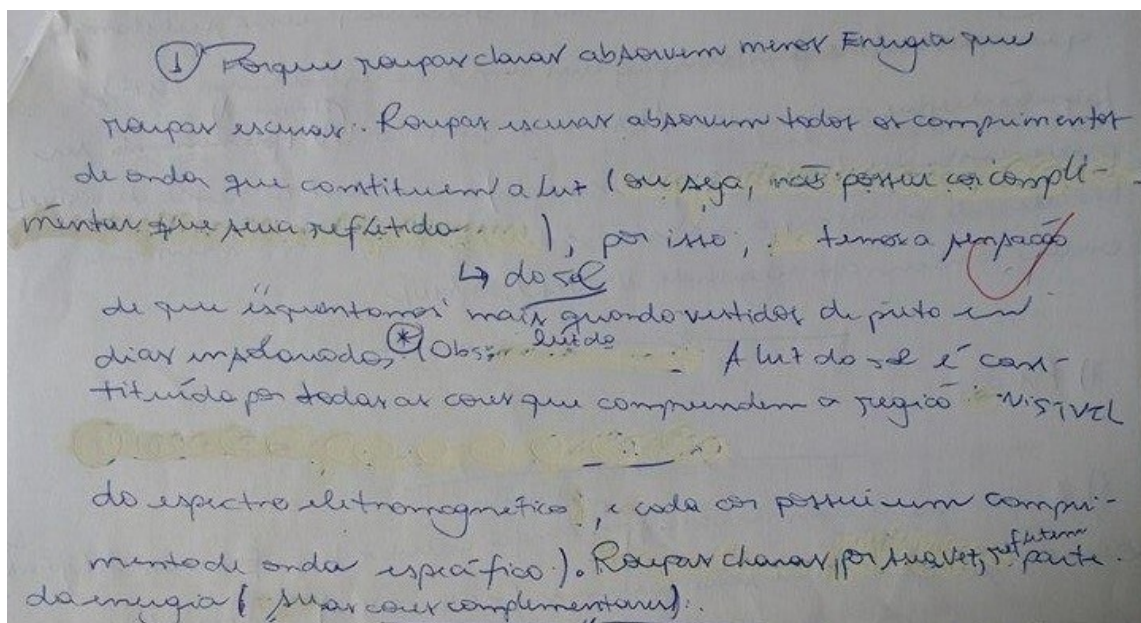 ① Porque roupas claras absorvem menos Energia que
roupas escuras. Roupas escuras absorvem todos os comprimentos
de onda que constituem a luz (ou seja, não possui cor compli-
mentar que seria refletida ), por isso, temos a sensação
↳ do sol
de que "esquentamos" mais quando vestidos de preto em
dias ensolarados, * (Obs:
A luz do sol é cons-
tituída por todas as cores que compreendem a região VISÍVEL
do espectro eletromagnético, e cada cor possui um compri-
mento de onda específico). Roupas claras, por sua vez, refletem parte
da energia (suas cores complementares).